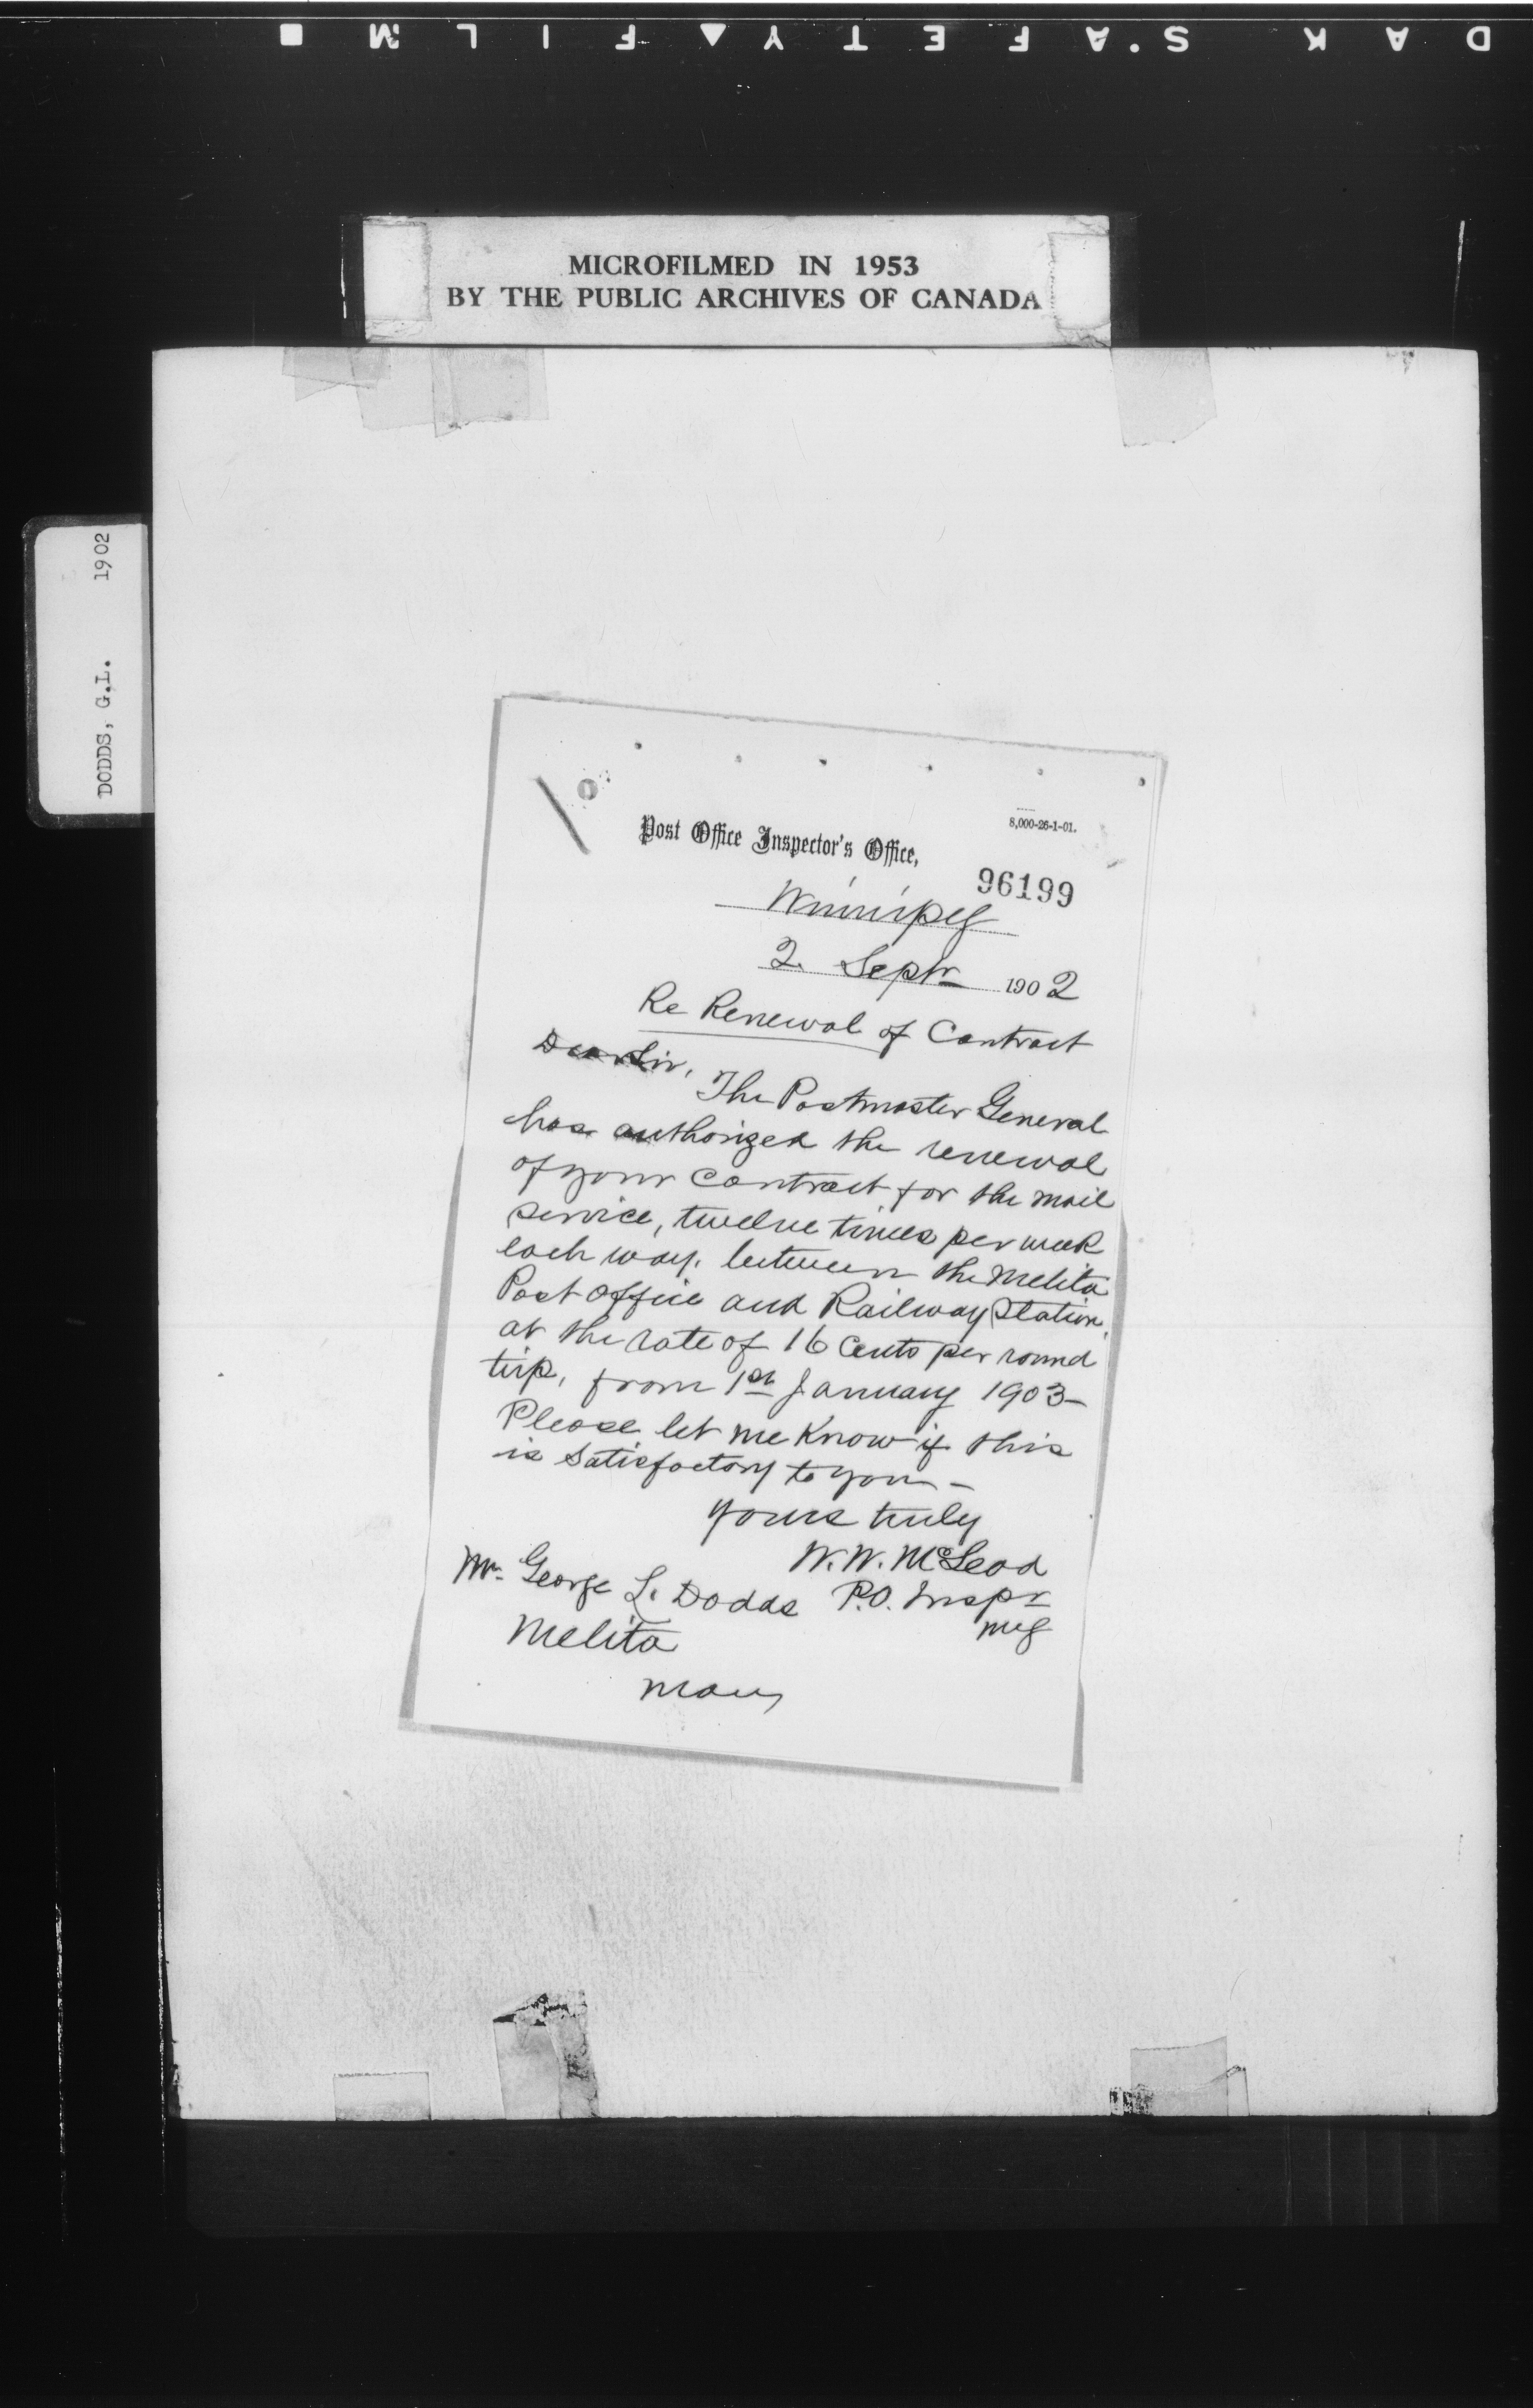 DAK S.AFETY▲FILM■
MICROFILMED IN 1953
BY THE PUBLIC ARCHIVES OF CANADA
DODDS, G.L. 1902
8,000-26-1-01.
Post Office Inspector's Office,
96199
Winnipeg
2 Septr 1902
Re Renewal of Contract
Dear Sir,
The Postmaster General
has authorized the renewal
of your contract for the mail
service, twelve times per week
each way, between the Melita
Post Office and Railway Station,
at the rate of 16 Cents per round
trip, from 1st January 1903–
Please let me Know if this
is satisfactory to you –
Yours truly
W. W. McLeod
P.O. Inspr
Mr. George L. Dodds
Melita
Man